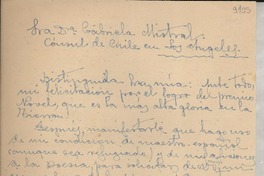 9105
Sra Dª. Gabriela Mistral.
Cónsul de Chile en Los Angeles.
Distinguida Eximia: Ante todo,
mi felicitación por el logro del premio
Novel, que es la más alta gloria en la
Después, manifestarle que hago uso
de mi condición de maestro español
como ser refugiado, y de mi
a la poesía, para solicitar de